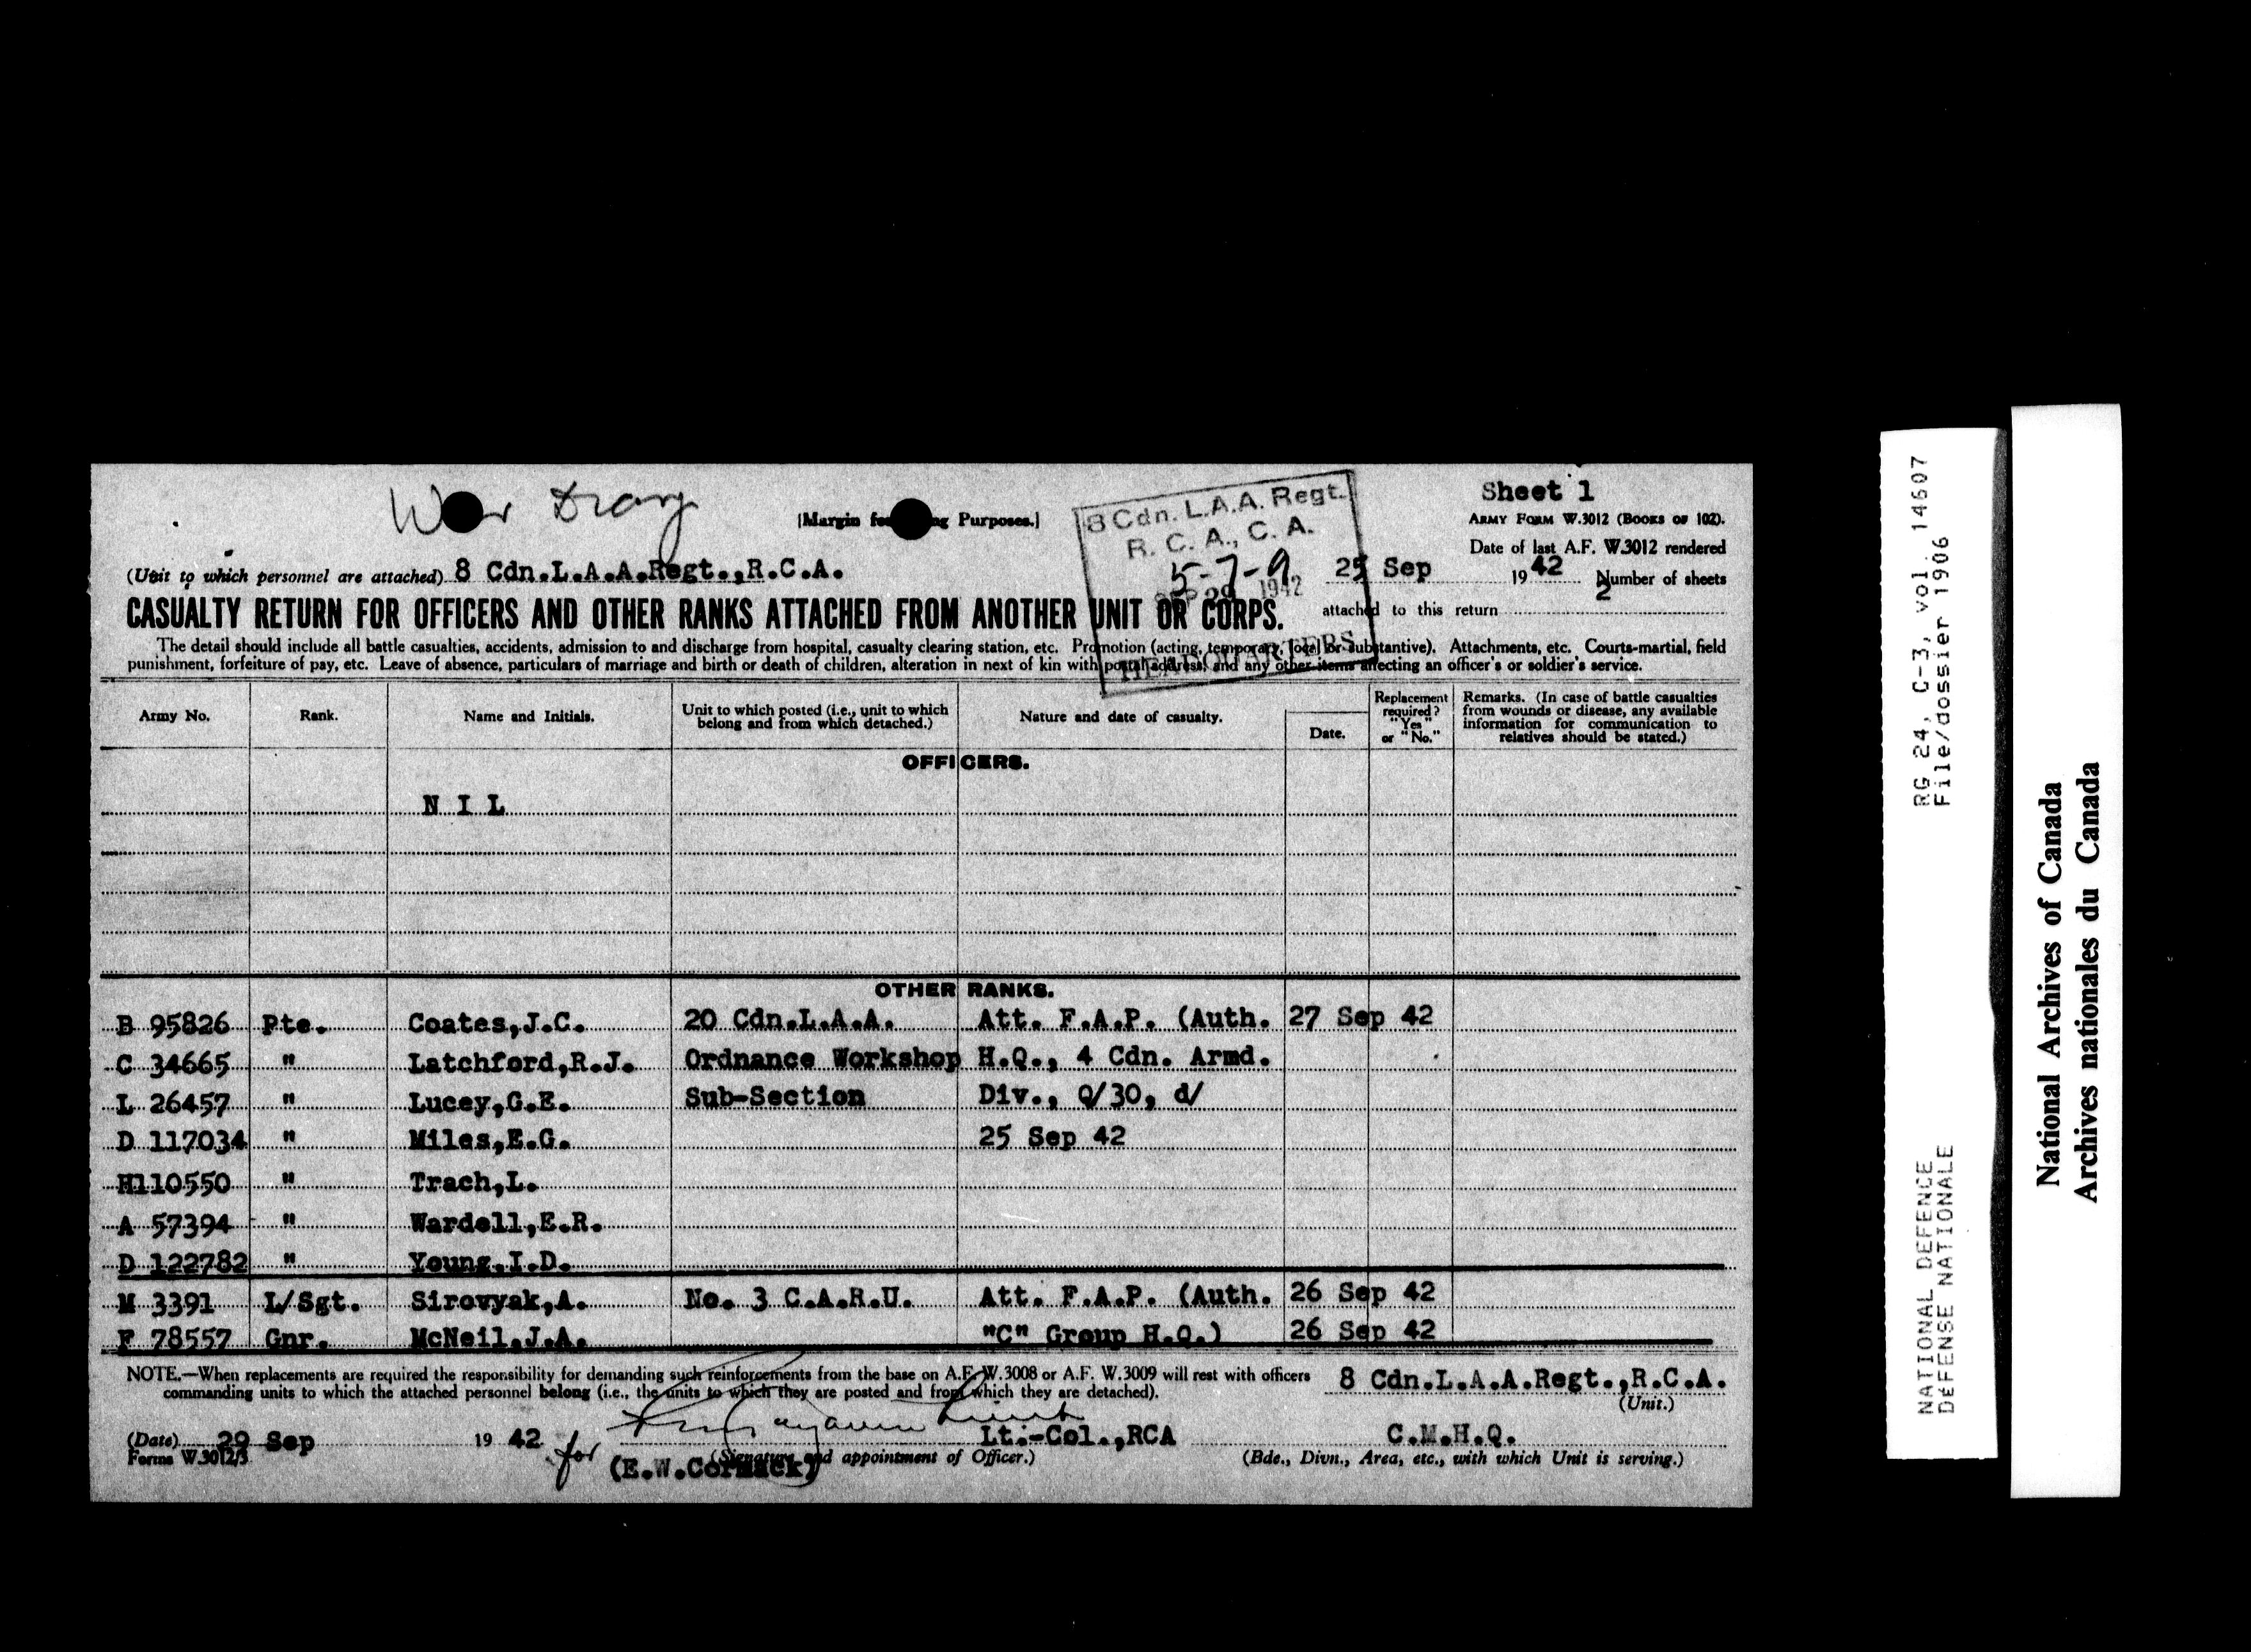 War Diary
[Margin for                ng Purposes.]
8 Cdn. L.A.A. Regt.
R. C. A., C. A.
5-7-9
SEP 29 1942
HEADQUARTERS
Sheet 1
ARMY FORM W.3012 (BOOKS OF 102).
Date of last A.F. W.3012 rendered
25 Sep 1942 Number of sheets
2
attached to this return
(Unit to which personnel are attached) 8 Cdn.L.A.A.Regt.,R.C.A.
CASUALTY RETURN FOR OFFICERS AND OTHER RANKS ATTACHED FROM ANOTHER UNIT OR CORPS.
The detail should include all battle casualties, accidents, admission to and discharge from hospital, casualty clearing station, etc. Promotion (acting, temporary, local or substantive). Attachments, etc. Courts-martial, field
punishment, forfeiture of pay, etc. Leave of absence, particulars of marriage and birth or death of children, alteration in next of kin with postal address, and any other items affecting an officer's or soldier's service.
Army No. Rank. Name and Initials. Unit to which posted (i.e., unit to which belong and from which detached.) Nature and date of casualty. Date. Replacement required? "Yes" or "No." Remarks. (In case of battle casualties from wounds or disease, any available information for communication to relatives should be stated.)
OFFICERS.
N I L
OTHER RANKS.
B 95826 Pte. Coates,J.C. 20 Cdn.L.A.A. Att. F.A.P. (Auth. 27 Sep 42
C 34665 " Latchford,R.J. Ordnance Workshop H.Q., 4 Cdn. Armd.
L 26457 " Lucey,G.E. Sub-Section Div., Q/30, d/
D 117034 " Miles,E.G. 25 Sep 42
H110550 " Trach,L.
A 57394 " Wardell,E.R.
D 122782 " Young,I.D.
M 3391 L/Sgt. Sirovyak,A. No. 3 C.A.R.U. Att. F.A.P. (Auth. 26 Sep 42
F 78557 Gnr. McNeil,J.A. "C" Group H.Q.) 26 Sep 42
NOTE.—When replacements are required the responsibility for demanding such reinforcements from the base on A.F. W.3008 or A.F. W.3009 will rest with officers
commanding units to which the attached personnel belong (i.e., the units to which they are posted and from which they are detached).
8 Cdn.L.A.A.Regt.,R.C.A.
(Unit.)
(Date) 29 Sep 19 42 for Lt.-Col.,RCA C.M.H.Q.
Forms W.3012/3 (E.W.Cormack) (Signature and appointment of Officer.) (Bde., Divn., Area, etc., with which Unit is serving.)
RG 24, C-3, vol. 14607
File/dossier 1906
NATIONAL DEFENCE
DÉFENSE NATIONALE
National Archives of Canada
Archives nationales du Canada